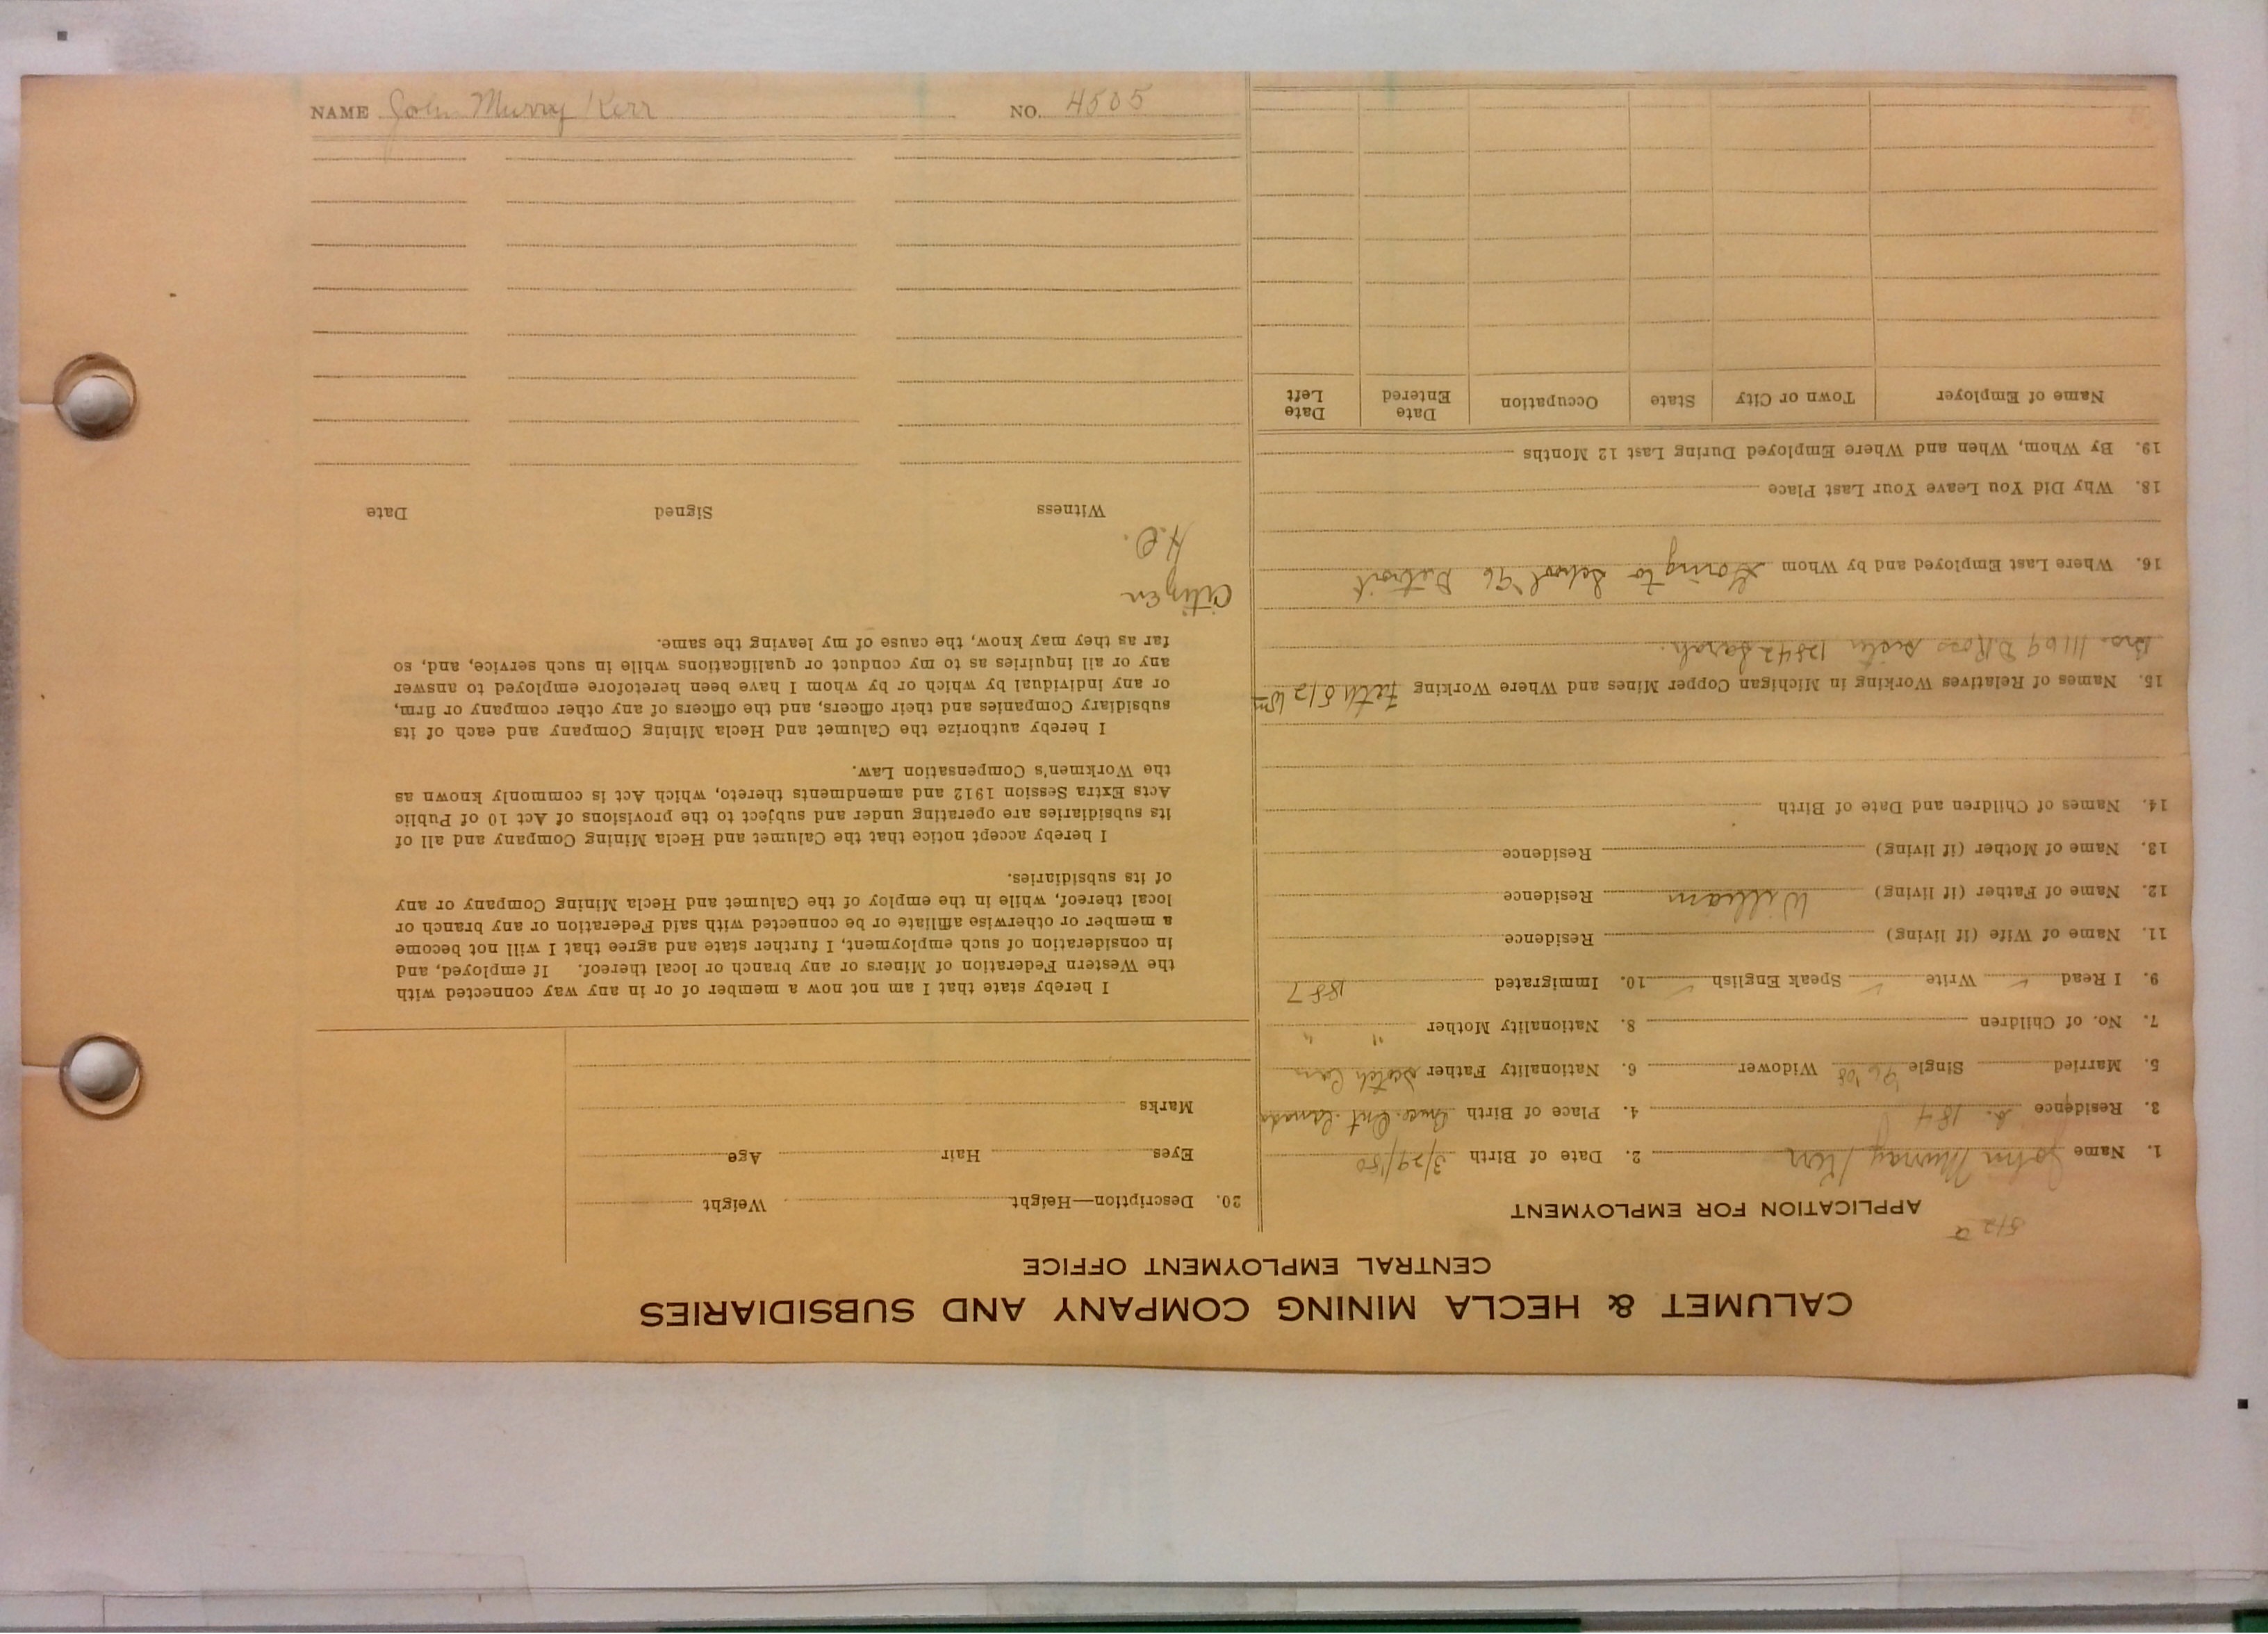 CALUMET & HECLA MINING COMPANY AND SUBSIDIARIES
CENTRAL EMPLOYMENT OFFICE
APPLICATION FOR EMPLOYMENT
1. Name John Murray Kerr 2. Date of Birth 3/29/80
3. Residence 184 4. Place of Birth Ont. Canada
5. Married Single 96 '08 Widower 6. Nationality Father Scotch Can
7. No. of Children 8. Nationality Mother " "
9. I Read ✓ Write ✓ Speak English ✓ 10. Immigrated 1887
11. Name of Wife (if living) Residence
12. Name of Father (if living) William Residence
13. Name of Mother (if living) Residence
14. Names of Children and Date of Birth
15. Names of Relatives Working in Michigan Copper Mines and Where Working Fath 512 Wm
Bro. 11169 D. Ross sister 12842 Sarah.
16. Where Last Employed and by Whom Going to School 96 Detroit
18. Why Did You Leave Your Last Place
19. By Whom, When and Where Employed During Last 12 Months
Name of Employer Town or City State Occupation Date Entered Date Left
20. Description—Height Weight
Eyes Hair Age
Marks
I hereby state that I am not now a member of or in any way connected with
the Western Federation of Miners or any branch or local thereof. If employed, and
in consideration of such employment, I further state and agree that I will not become
a member or otherwise affiliate or be connected with said Federation or any branch or
local thereof, while in the employ of the Calumet and Hecla Mining Company or any
of its subsidiaries.
I hereby accept notice that the Calumet and Hecla Mining Company and all of
its subsidiaries are operating under and subject to the provisions of Act 10 of Public
Acts Extra Session 1912 and amendments thereto, which Act is commonly known as
the Workmen's Compensation Law.
I hereby authorize the Calumet and Hecla Mining Company and each of its
subsidiary Companies and their officers, and the officers of any other company or firm,
or any individual by which or by whom I have been heretofore employed to answer
any or all inquiries as to my conduct or qualifications while in such service, and, so
far as they may know, the cause of my leaving the same.
Citizen
H.C.
Witness Signed Date
NAME John Murray Kerr NO. 4505